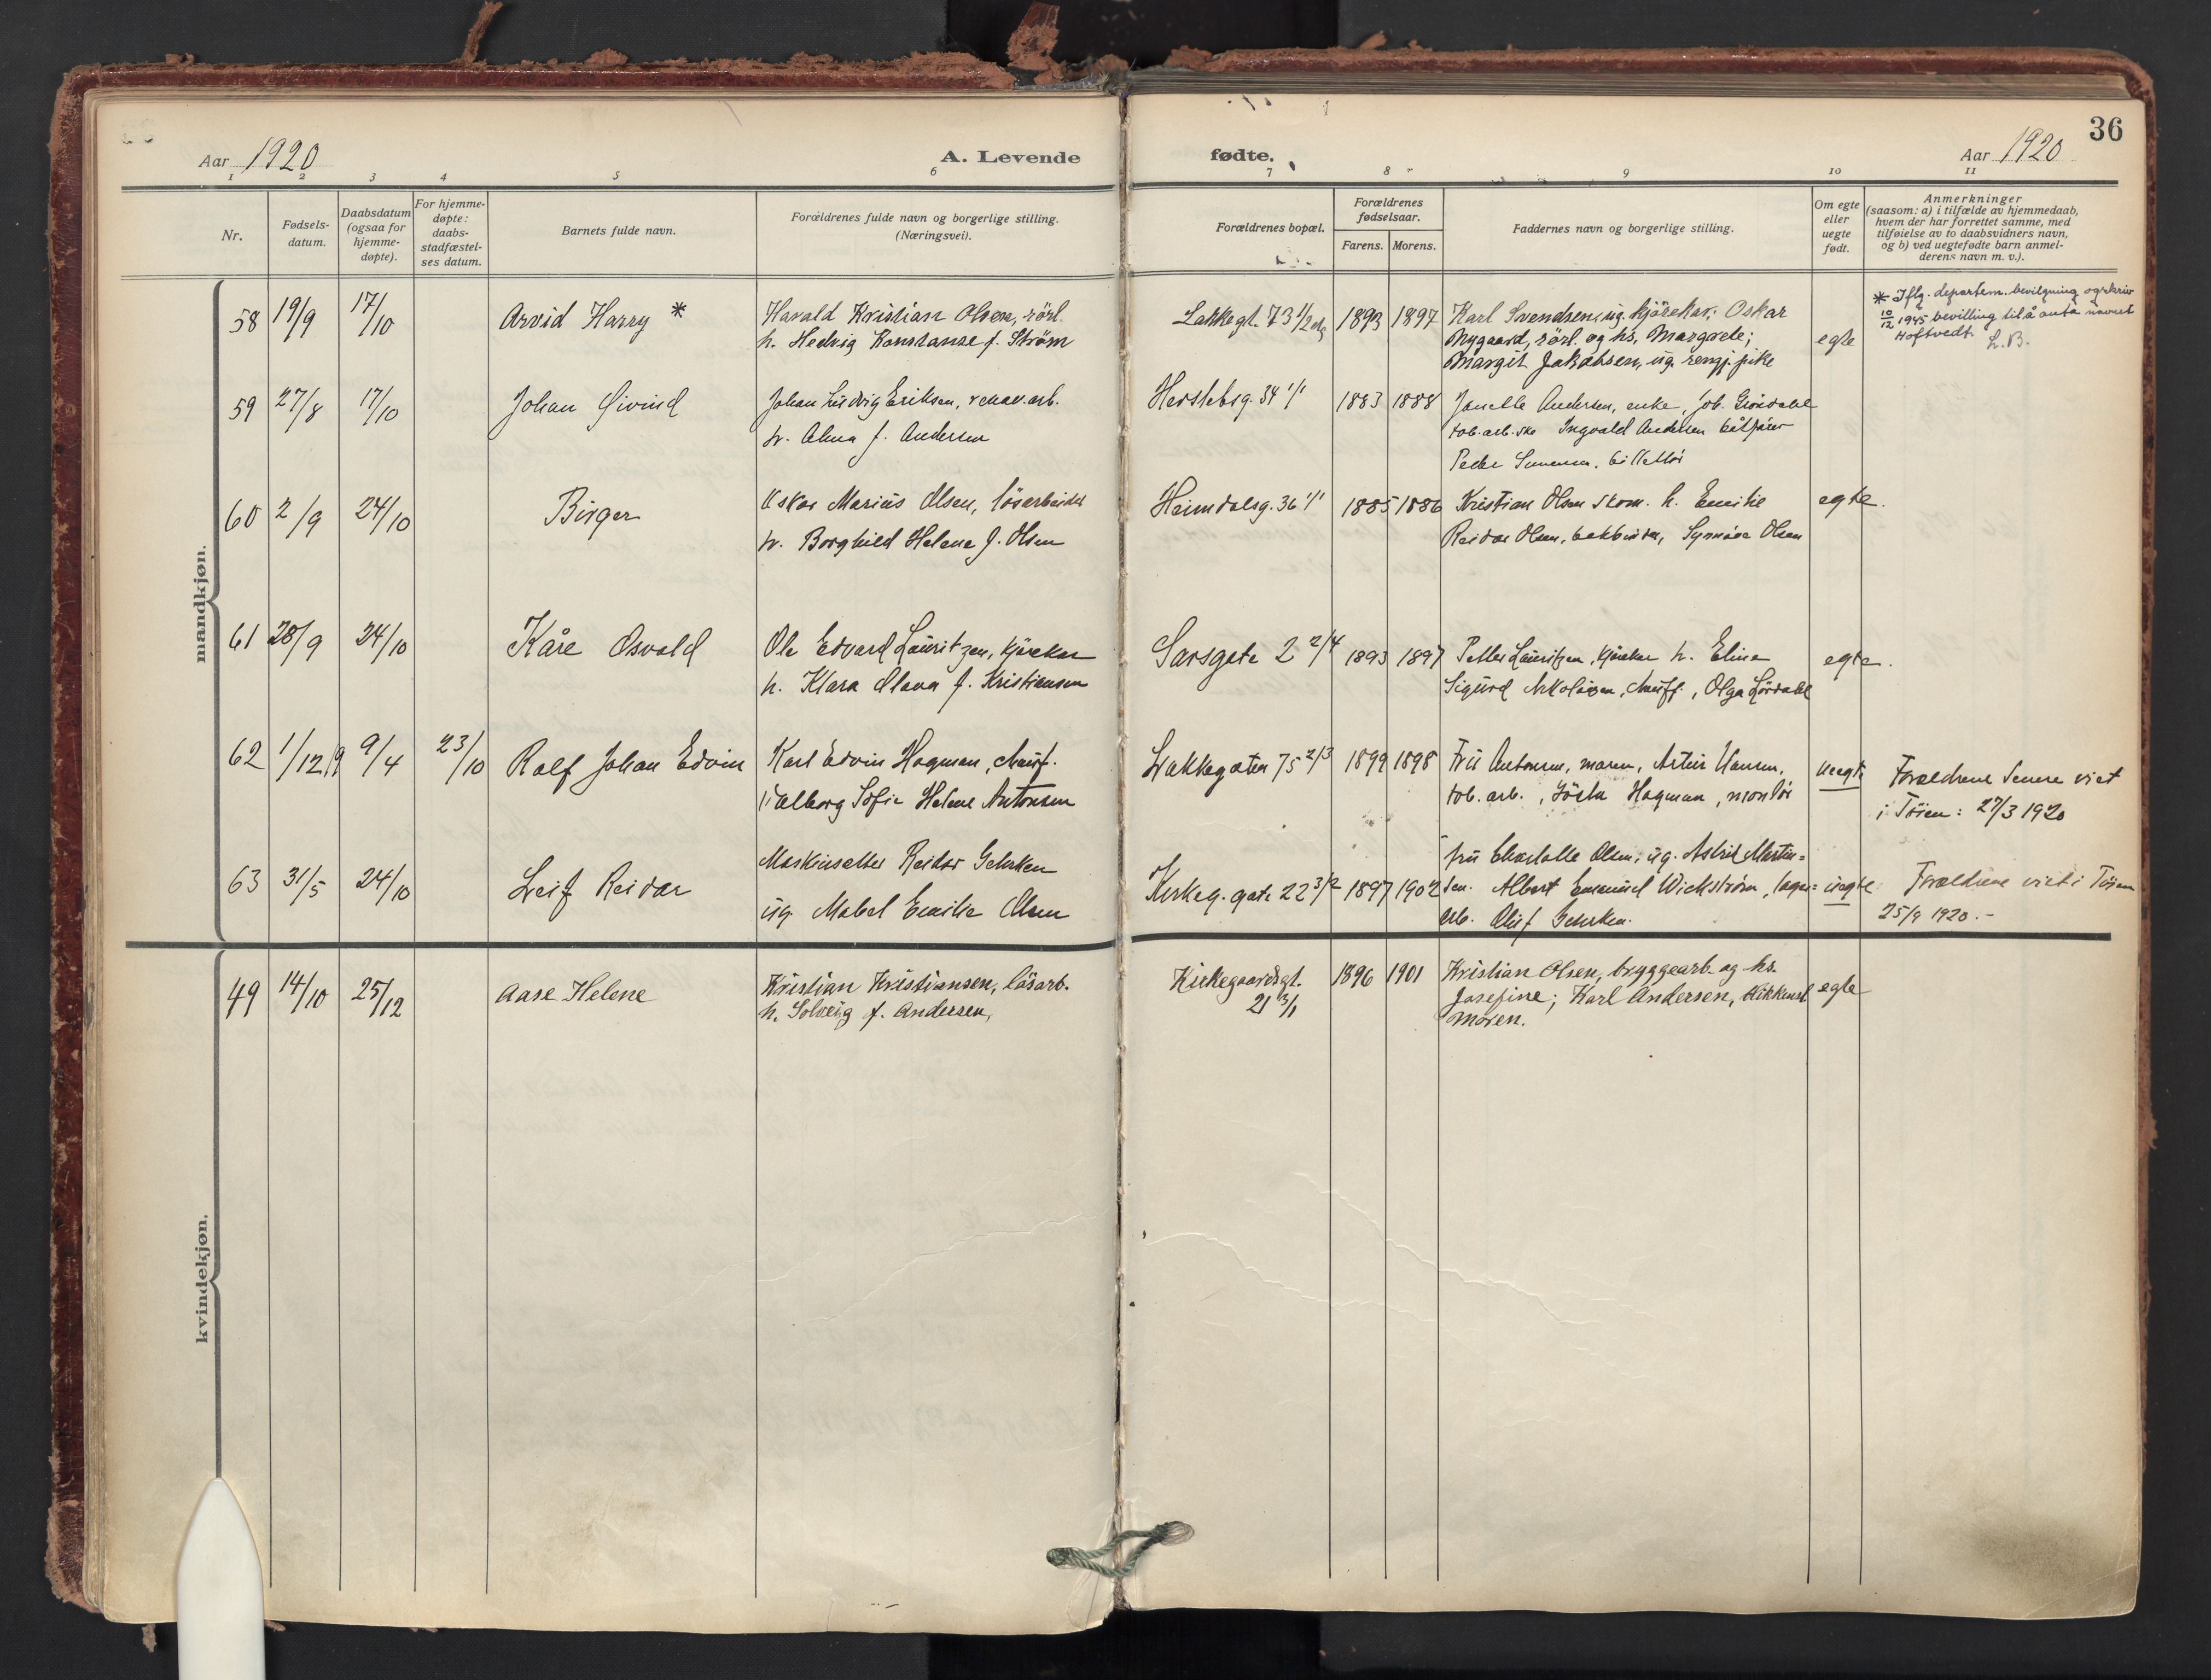 36
Aar 1920
A. Levende fødte.
Aar 1920
1 2 3 4 5 6 7 8 9 10 11
Nr.
Fødsels-
datum.
Daabsdatum
(ogsaa for
hjemme-
døpte).
For hjemme-
døpte:
daabs-
stadfæstel-
ses datum.
Barnets fulde navn.
Forældrenes fulde navn og borgerlige stilling.
(Næringsvei).
Forældrenes bopæl.
Forældrenes
fødselsaar.
Farens. Morens.
Faddernes navn og borgerlige stilling.
Om egte
eller
uegte
født.
Anmerkninger
(saasom: a) i tilfælde av hjemmedaab,
hvem der har forrettet samme, med
tilføielse av to daabsvidners navn,
og b) ved uegtefødte barn anmel-
derens navn m. v.).
mandkjøn.
58 19/9 17/10 Arvid Harry * Harald Kristian Olsen, rörl.
h. Hedvig Konstanse f. Ström
Lakkegt. 73 1/2 1893 1897
Karl Svendsen, ug. kjörekar; Oskar
Nygaard, rörl. og hs. Margrete;
Margit Jakobsen, ug. rengj. pike
egte
* Iflg. departem. bevilgning og skriv
10/12 1945 bevilling til å anta navnet
Hoftvedt. L.B.
59 27/8 17/10 Johan Øivind Johan Ludvig Eriksen, renov. arb.
h. Alma f. Andersen
Herslebsg. 34 1/1 1883 1888
Janette Andersen, enke, Job. Gröndahl
tob. arb. ske Ingvald Andersen båtfører
Peder billettør
60 2/9 24/10 Birger Oskar Marius Olsen, løsarbeider
h. Borghild Helene f. Olsen
Heimdalsg. 36 1/1 1885 1886
Kristian Olsen skom. h. Emilie
Reidar Olsen, bokbinder, Synnöve Olsen
egte.
61 28/9 24/10 Kåre Osvald Ole Edvard Lauritzen, kjørekar
h. Klara Olava f. Kristiansen
Sarsgate 2 2/4 1893 1897
Petter Lauritzen, kjørekar h. Eline
Sigurd Nikolaisen, chauff., Olga Lördahl
egte.
62 1/12 19 9/4 23/10 Rolf Johan Edvin Karl Edvin Hagman, chauf.
Valborg Sofie Helene Antonsen
Lakkegaten 75 2/3 1899 1898
Fru Antonsen, moren, Artur Hansen,
tob. arb., Gösta Hagman, montör
uegte
Forældrene senere viet
i Töien: 27/3 1920
63 31/5 24/10 Leif Reidar Maskinsetter Reidar Gehrken
ug. Mabel Emilie Olsen
Kirkeg. gate 22 3/2 1897 1902
fru Charlotte Olsen, ug. Astrid Martin=
sen. Albert Emanuel Wickström, lager=
arb. Oluf Gehrken.
uegte
Forældrene viet i Töien
25/9 1920.-
kvindekjøn.
49 14/10 25/12 Aase Helene Kristian Kristiansen, løsarb.
h. Solveig f. Andersen,
Kirkegaardsgt.
21 3/1
1896 1901
Kristian Olsen, bryggearb. og hs.
Josefine; Karl Andersen,
moren.
egte